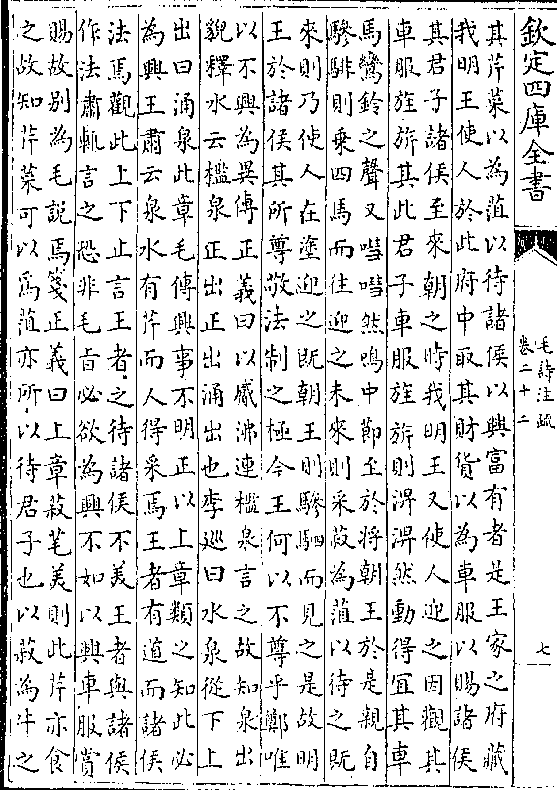 欽定四庫全書
毛詩注疏
卷二十二
七
其芹菜以為菹以待諸侯以興富有者是王家之府藏
我明王使人於此府中取其財貨以為車服以賜諸侯
其君子諸侯至來朝之時我明王又使人迎之因觀其
車服旌旂其此君子車服旌旂則淠淠然動得宜其車
馬鸞鈴之聲又嘒嘒然鳴中節至於將朝王於是親自
驂騑則乗四馬而往迎之未來則采菽為菹以待之既
來則乃使人在塗迎之既朝王則驂駟而見之是故明
王於諸侯其所尊敬法制之極今王何以不尊乎鄭唯
以不興為異傳正義曰以觱沸連檻泉言之故知泉出
貌釋水云檻泉正出正出涌出也李廵曰水泉從下上
出曰涌泉此章毛傳興事不明正以上章類之知此必
為興王肅云泉水有芹而人得采焉王者有道而諸侯
法焉觀此上下止言王者之待諸侯不美王者與諸侯
作法肅輒言之恐非毛旨必欲為興不如以興車服賞
賜故别為毛說焉箋正義曰上章菽芼美則此芹亦食
之故知芹菜可以為菹亦所以待君子也以菽為牛之